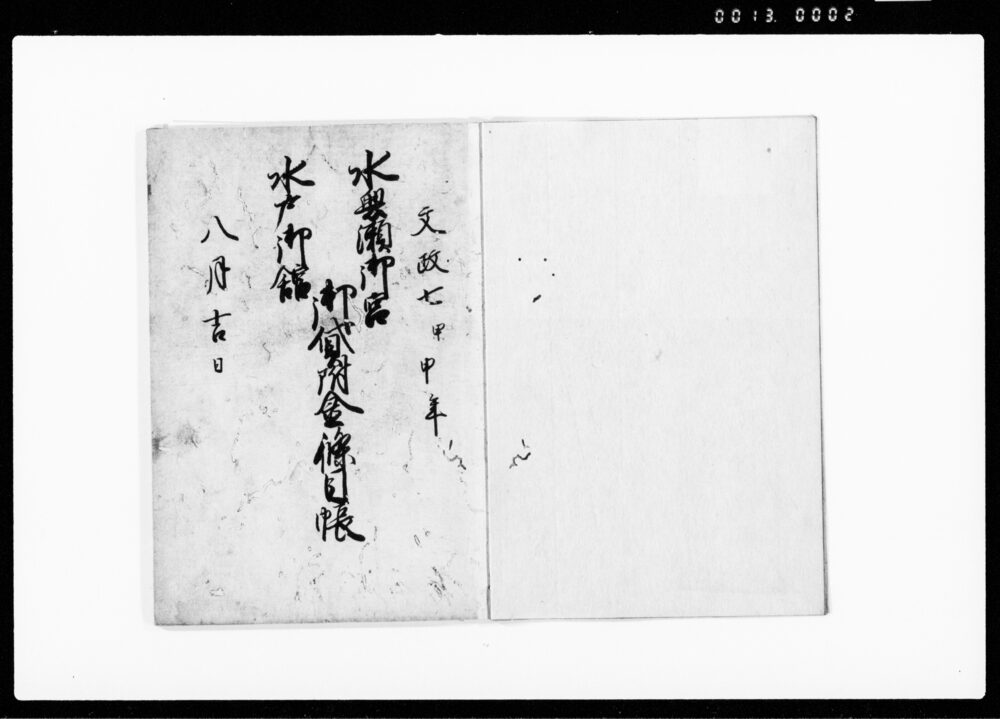 0013. 0002
文政七甲申年
水無瀬御宮
水戸御舘
御貸附金條目帳
八月吉日